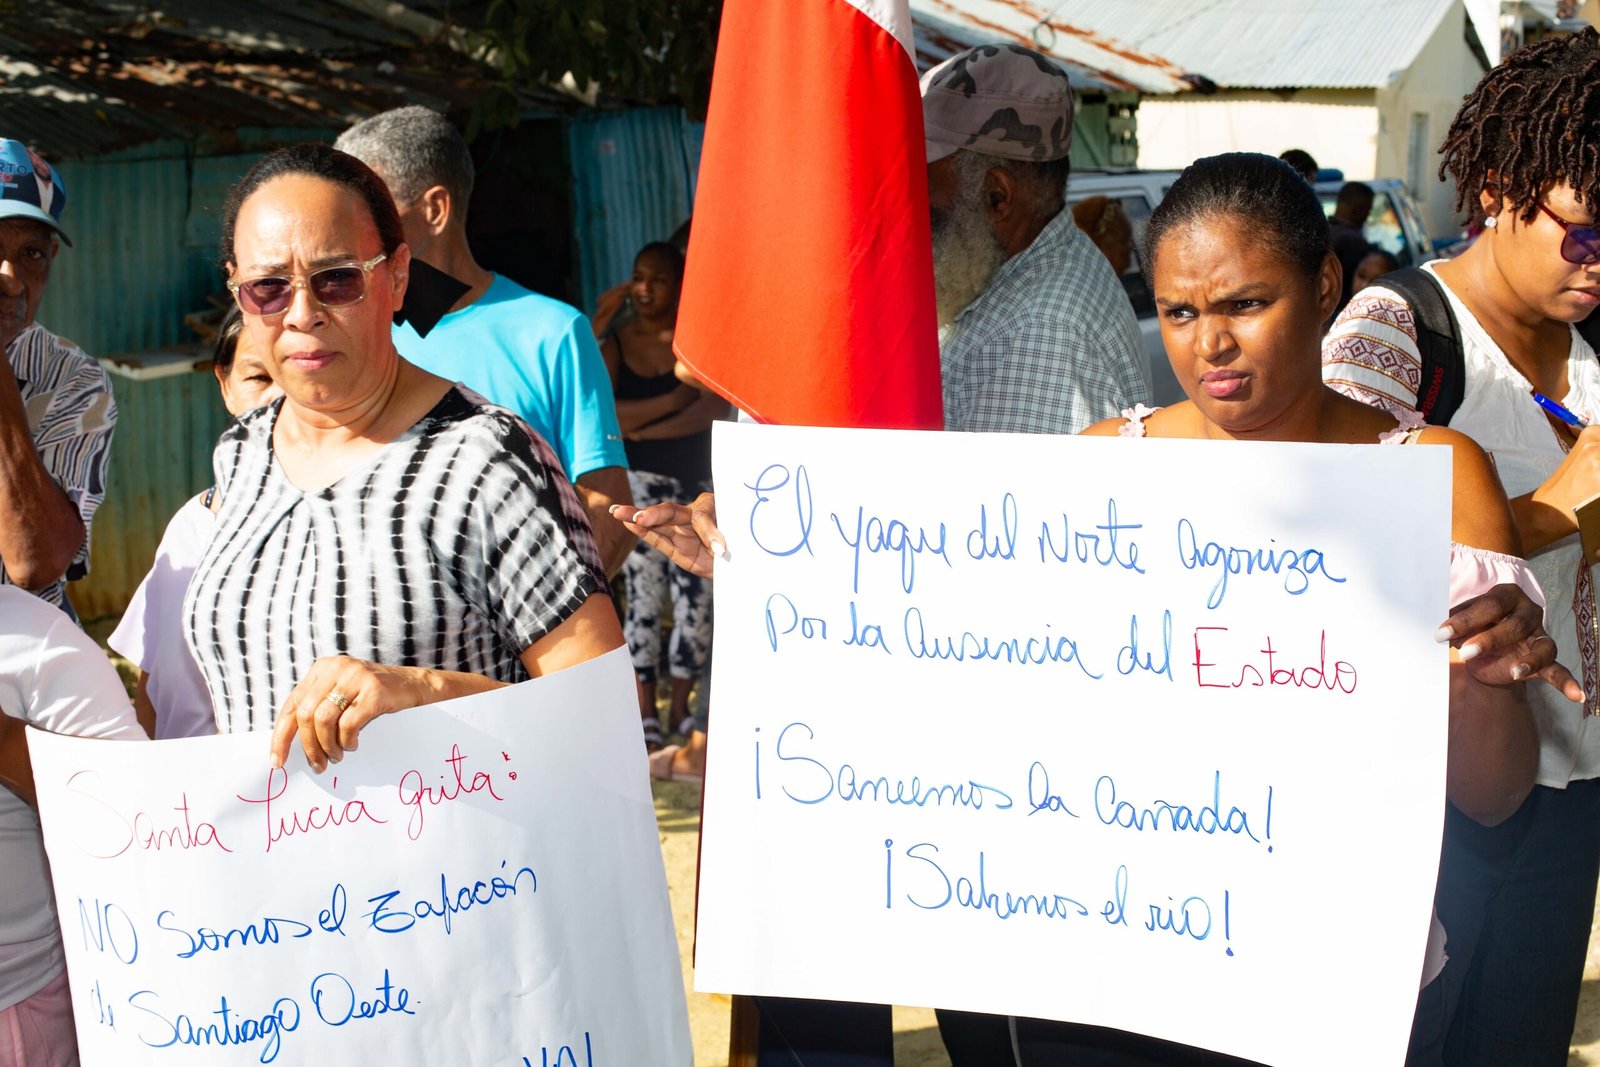 Santa Lucía grita:
NO Somos el Zafacón
de Santiago Oeste.
YA!
El Yaque del Norte Agoniza
Por la Ausencia del Estado
¡Saneemos la Cañada!
¡Salvemos el río!
SWISS